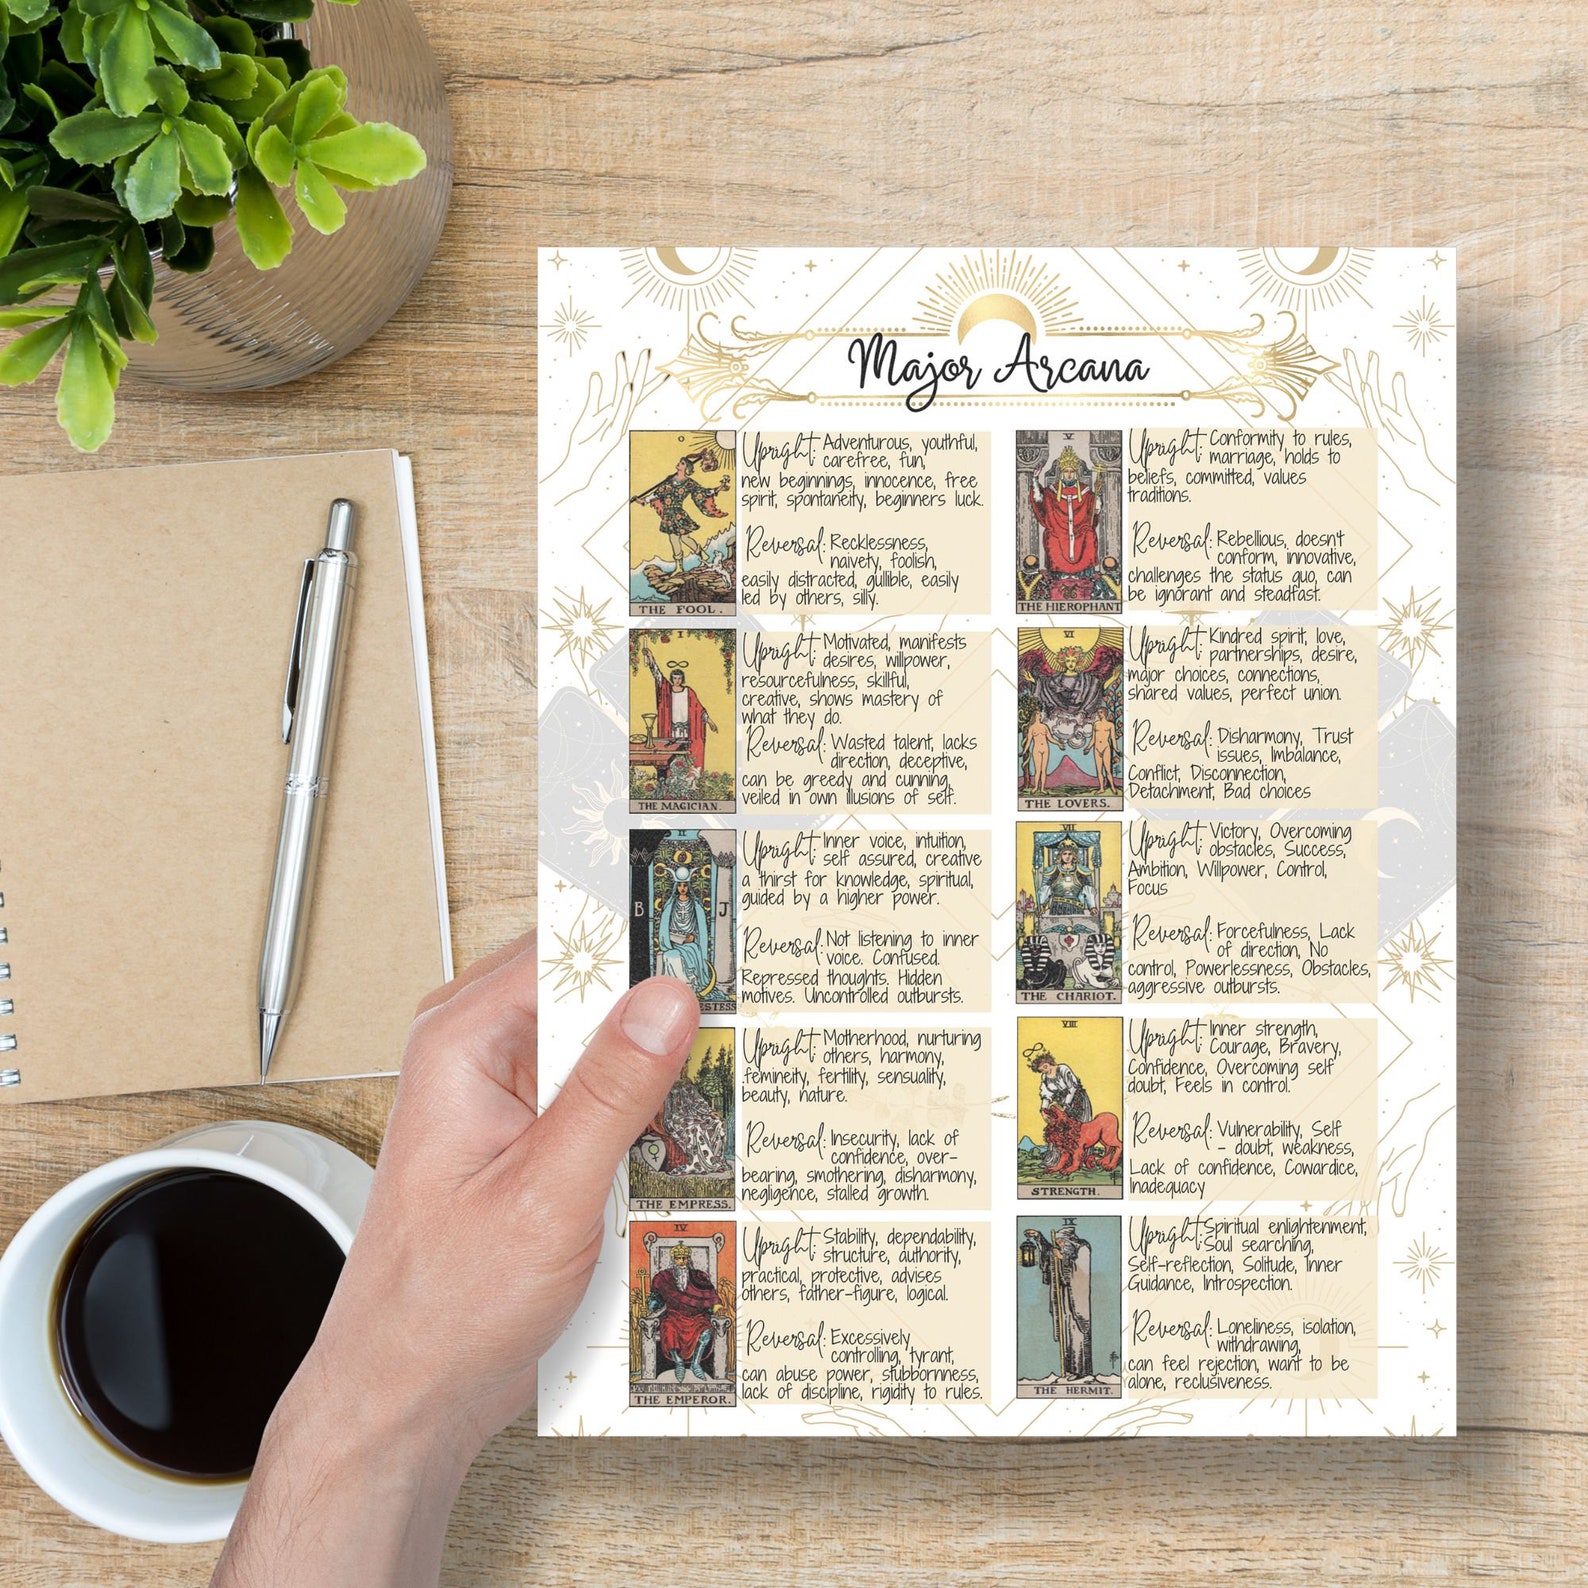 Major Arcana
THE FOOL.
Upright: Adventurous, youthful,
carefree, fun,
new beginnings, innocence, free
spirit, spontaneity, beginners luck.
Reversal: Recklessness,
naivety, foolish,
easily distracted, gullible, easily
led by others, silly.
I
THE MAGICIAN.
Upright: Motivated, manifests
desires, willpower,
resourcefulness, skillful,
creative, shows mastery of
what they do.
Reversal: Wasted talent, lacks
direction, deceptive,
can be greedy and cunning,
veiled in own illusions of self.
II
B J
ESTESS
Upright: Inner voice, intuition,
self assured, creative
a thirst for knowledge, spiritual,
guided by a higher power.
Reversal: Not listening to inner
voice. Confused.
Repressed thoughts. Hidden
motives. Uncontrolled outbursts.
THE EMPRESS.
Upright: Motherhood, nurturing
others, harmony,
femineity, fertility, sensuality,
beauty, nature.
Reversal: Insecurity, lack of
confidence, over-
bearing, smothering, disharmony,
negligence, stalled growth.
IV
THE EMPEROR.
Upright: Stability, dependability,
structure, authority,
practical, protective, advises
others, father-figure, logical.
Reversal: Excessively
controlling, tyrant,
can abuse power, stubbornness,
lack of discipline, rigidity to rules.
V
THE HIEROPHANT
Upright: Conformity to rules,
marriage, holds to
beliefs, committed, values
traditions.
Reversal: Rebellious, doesn't
conform, innovative,
challenges the status quo, can
be ignorant and steadfast.
VI
THE LOVERS.
Upright: Kindred spirit, love,
partnerships, desire,
major choices, connections,
shared values, perfect union.
Reversal: Disharmony, Trust
issues, Imbalance,
Conflict, Disconnection,
Detachment, Bad choices
VII
THE CHARIOT.
Upright: Victory, Overcoming
obstacles, Success,
Ambition, Willpower, Control,
Focus
Reversal: Forcefulness, Lack
of direction, No
control, Powerlessness, Obstacles,
aggressive outbursts.
VIII
STRENGTH.
Upright: Inner strength,
Courage, Bravery,
Confidence, Overcoming self
doubt, Feels in control.
Reversal: Vulnerability, Self
- doubt, weakness,
Lack of confidence, Cowardice,
Inadequacy
IX
THE HERMIT.
Upright: Spiritual enlightenment,
Soul searching,
Self-reflection, Solitude, Inner
Guidance, Introspection.
Reversal: Loneliness, isolation,
withdrawing,
can feel rejection, want to be
alone, reclusiveness.